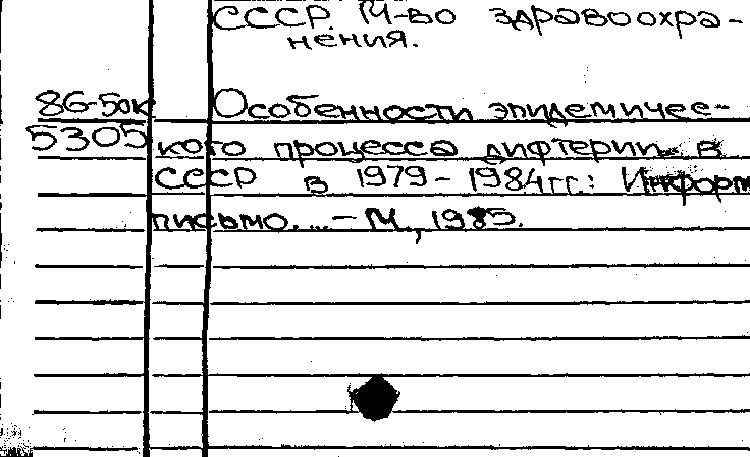 СССР. М-во здравоохра-
нения.
86-50к Особенности эпидемичес-
5305 кого процесса дифтерии в
СССР в 1979-1984гг.: Информ
письмо. ... - М., 1985.